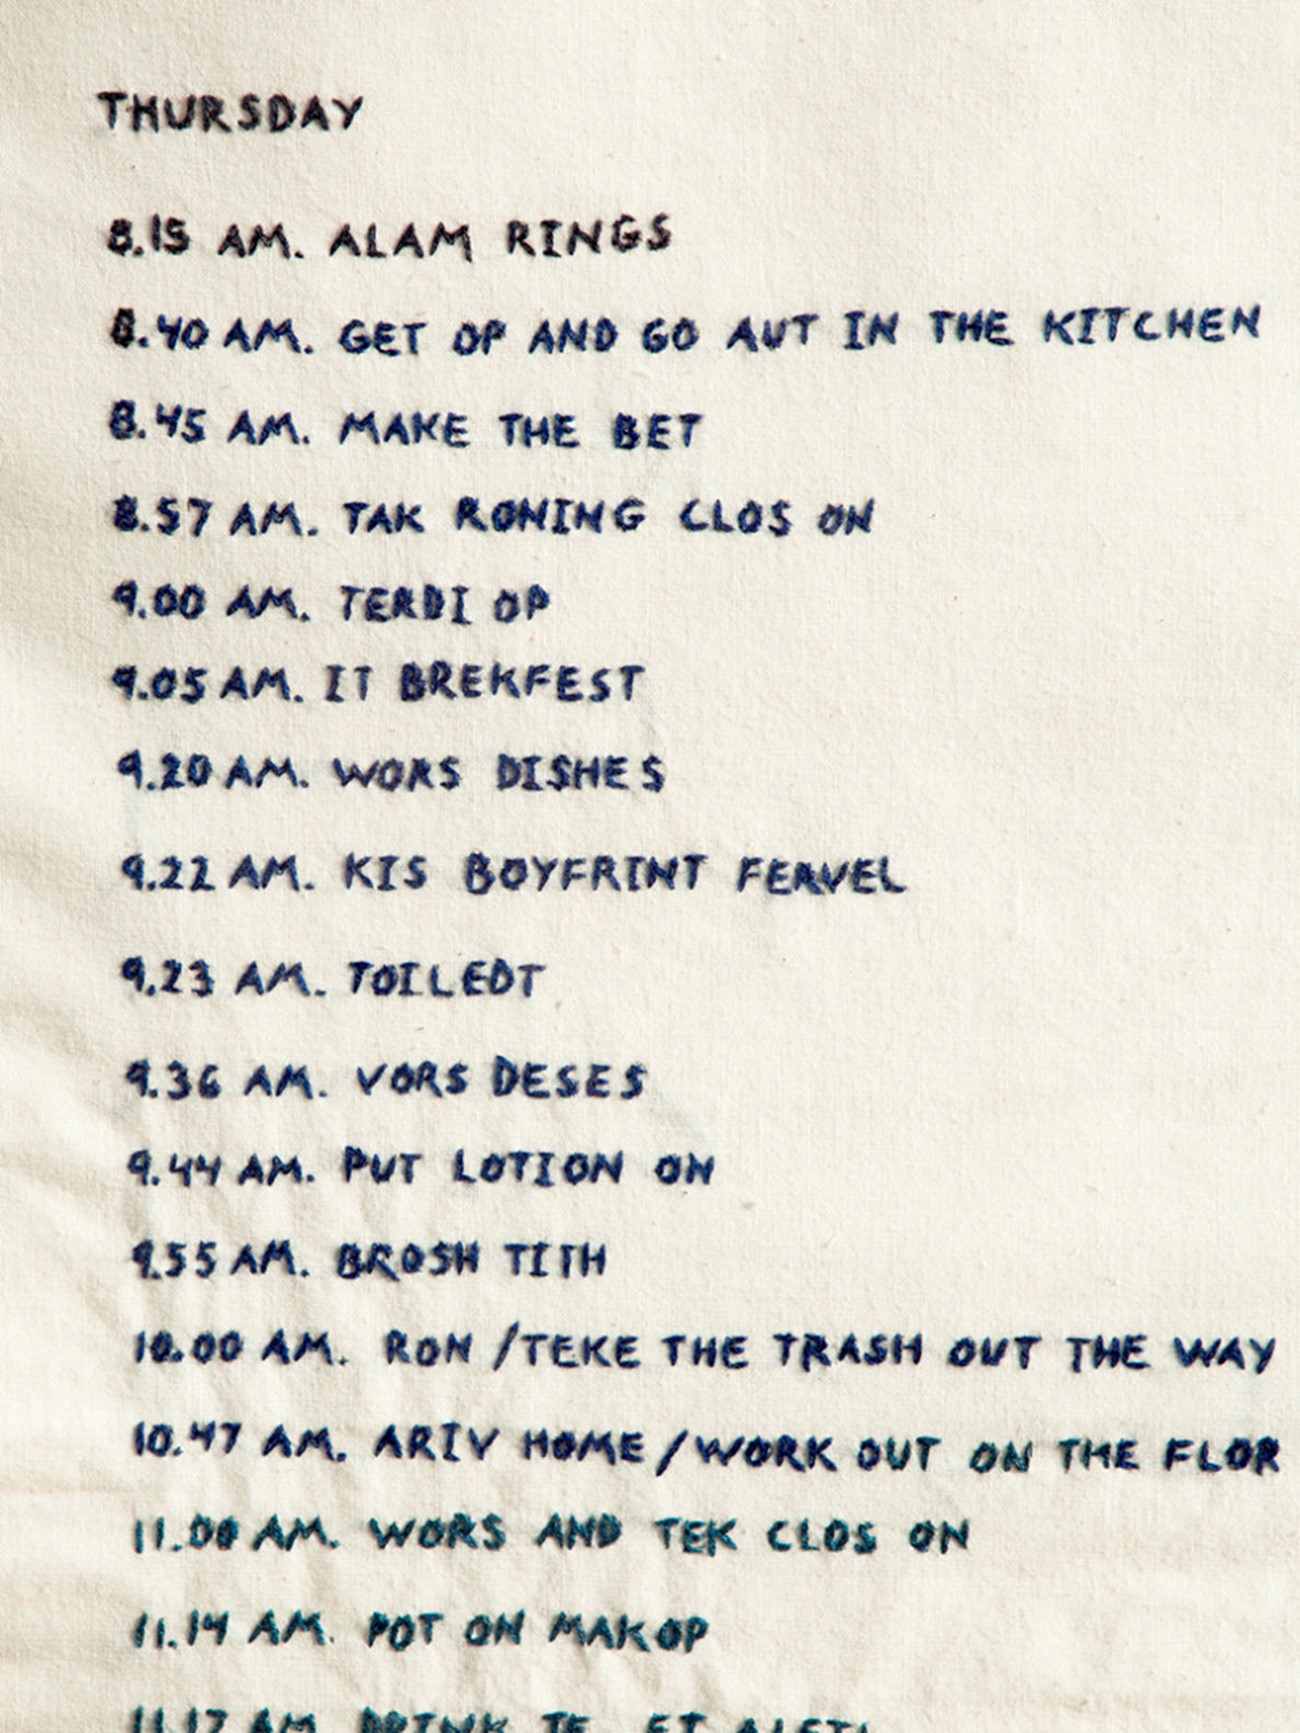 THURSDAY
8.15 AM. ALAM RINGS
8.40 AM. GET OP AND GO AUT IN THE KITCHEN
8.45 AM. MAKE THE BET
8.57 AM. TAK RONING CLOS ON
9.00 AM. TERDI OP
9.05 AM. IT BREKFEST
9.20 AM. WORS DISHES
9.22 AM. KIS BOYFRINT FERVEL
9.23 AM. TOILEDT
9.36 AM. VORS DESES
9.44 AM. PUT LOTION ON
9.55 AM. BROSH TITH
10.00 AM. RON /TEKE THE TRASH OUT THE WAY
10.47 AM. ARIV HOME /WORK OUT ON THE FLOR
11.00 AM. WORS AND TEK CLOS ON
11.14 AM. POT ON MAKOP
11.17 AM. DRINK TE